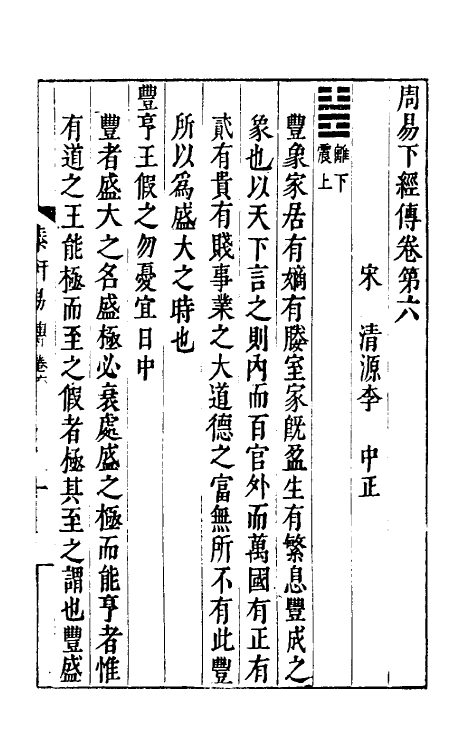 周易下經傳卷第六
宋 清源李 中正
離下
震上
豐象家居有嫡有媵室家旣盈生有繁息豐成之
象也以天下言之則內而百官外而萬國有正有
貳有貴有賤事業之大道德之富無所不有此豐
所以爲盛大之時也
豐亨王假之勿憂宜日中
豐者盛大之名盛極必衰處盛之極而能亨者惟
有道之王能極而至之假者極其至之謂也豐盛
軒易傳卷六